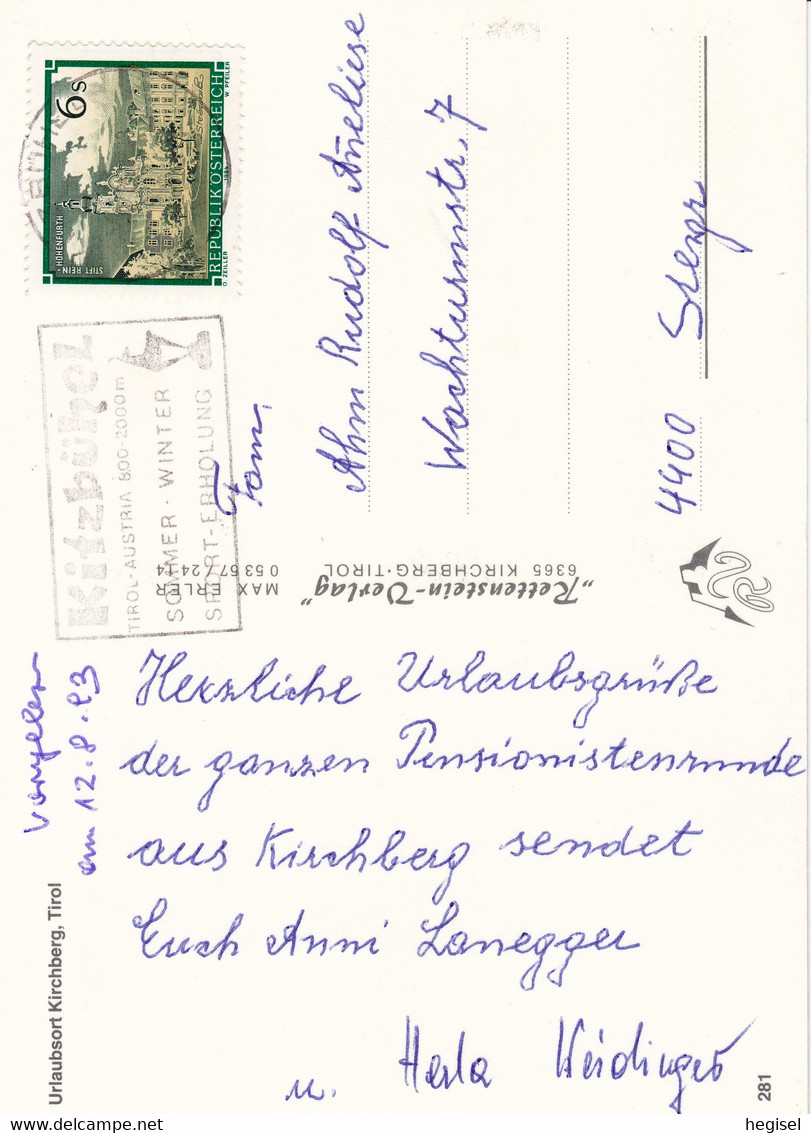 6s
REPUBLIK ÖSTERREICH
STIFT REIN-
HOHENFURTH
O. ZEILLER
W. PFEILER
Kitzbühel
TIROL-AUSTRIA 800-2000m
SOMMER · WINTER
SPORT-ERHOLUNG
Fam.
Ahm Rudolf Añeliese
Wachturmstr. 7
4400 Steyr
„Rettenstein-Verlag“
6365 KIRCHBERG·TIROL
MAX ERLER
0 53 57/24 14
vorgelesen
am 12.8.93
Herzliche Urlaubsgrüße
der ganzen Pensionistenrunde
aus Kirchberg sendet
Euch Anni Lanegger
u. Herta Weidinger
Urlaubsort Kirchberg, Tirol
281
hegisel